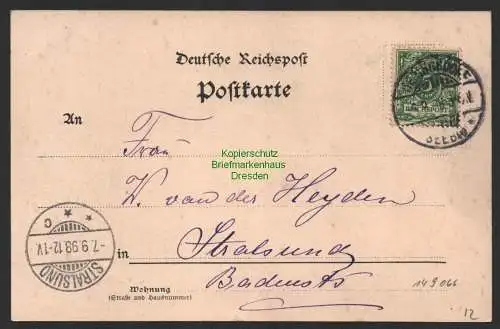 Deutsche Reichspost
Postkarte
An
Frau
Kopierschutz
Briefmarkenhaus
Dresden
W. van der Heyden
in
Stralsund
Badenstr
-7.9.98.12-1V.
STRALSUND
C
Wohnung
(Straße und Hausnummer)
149066
12